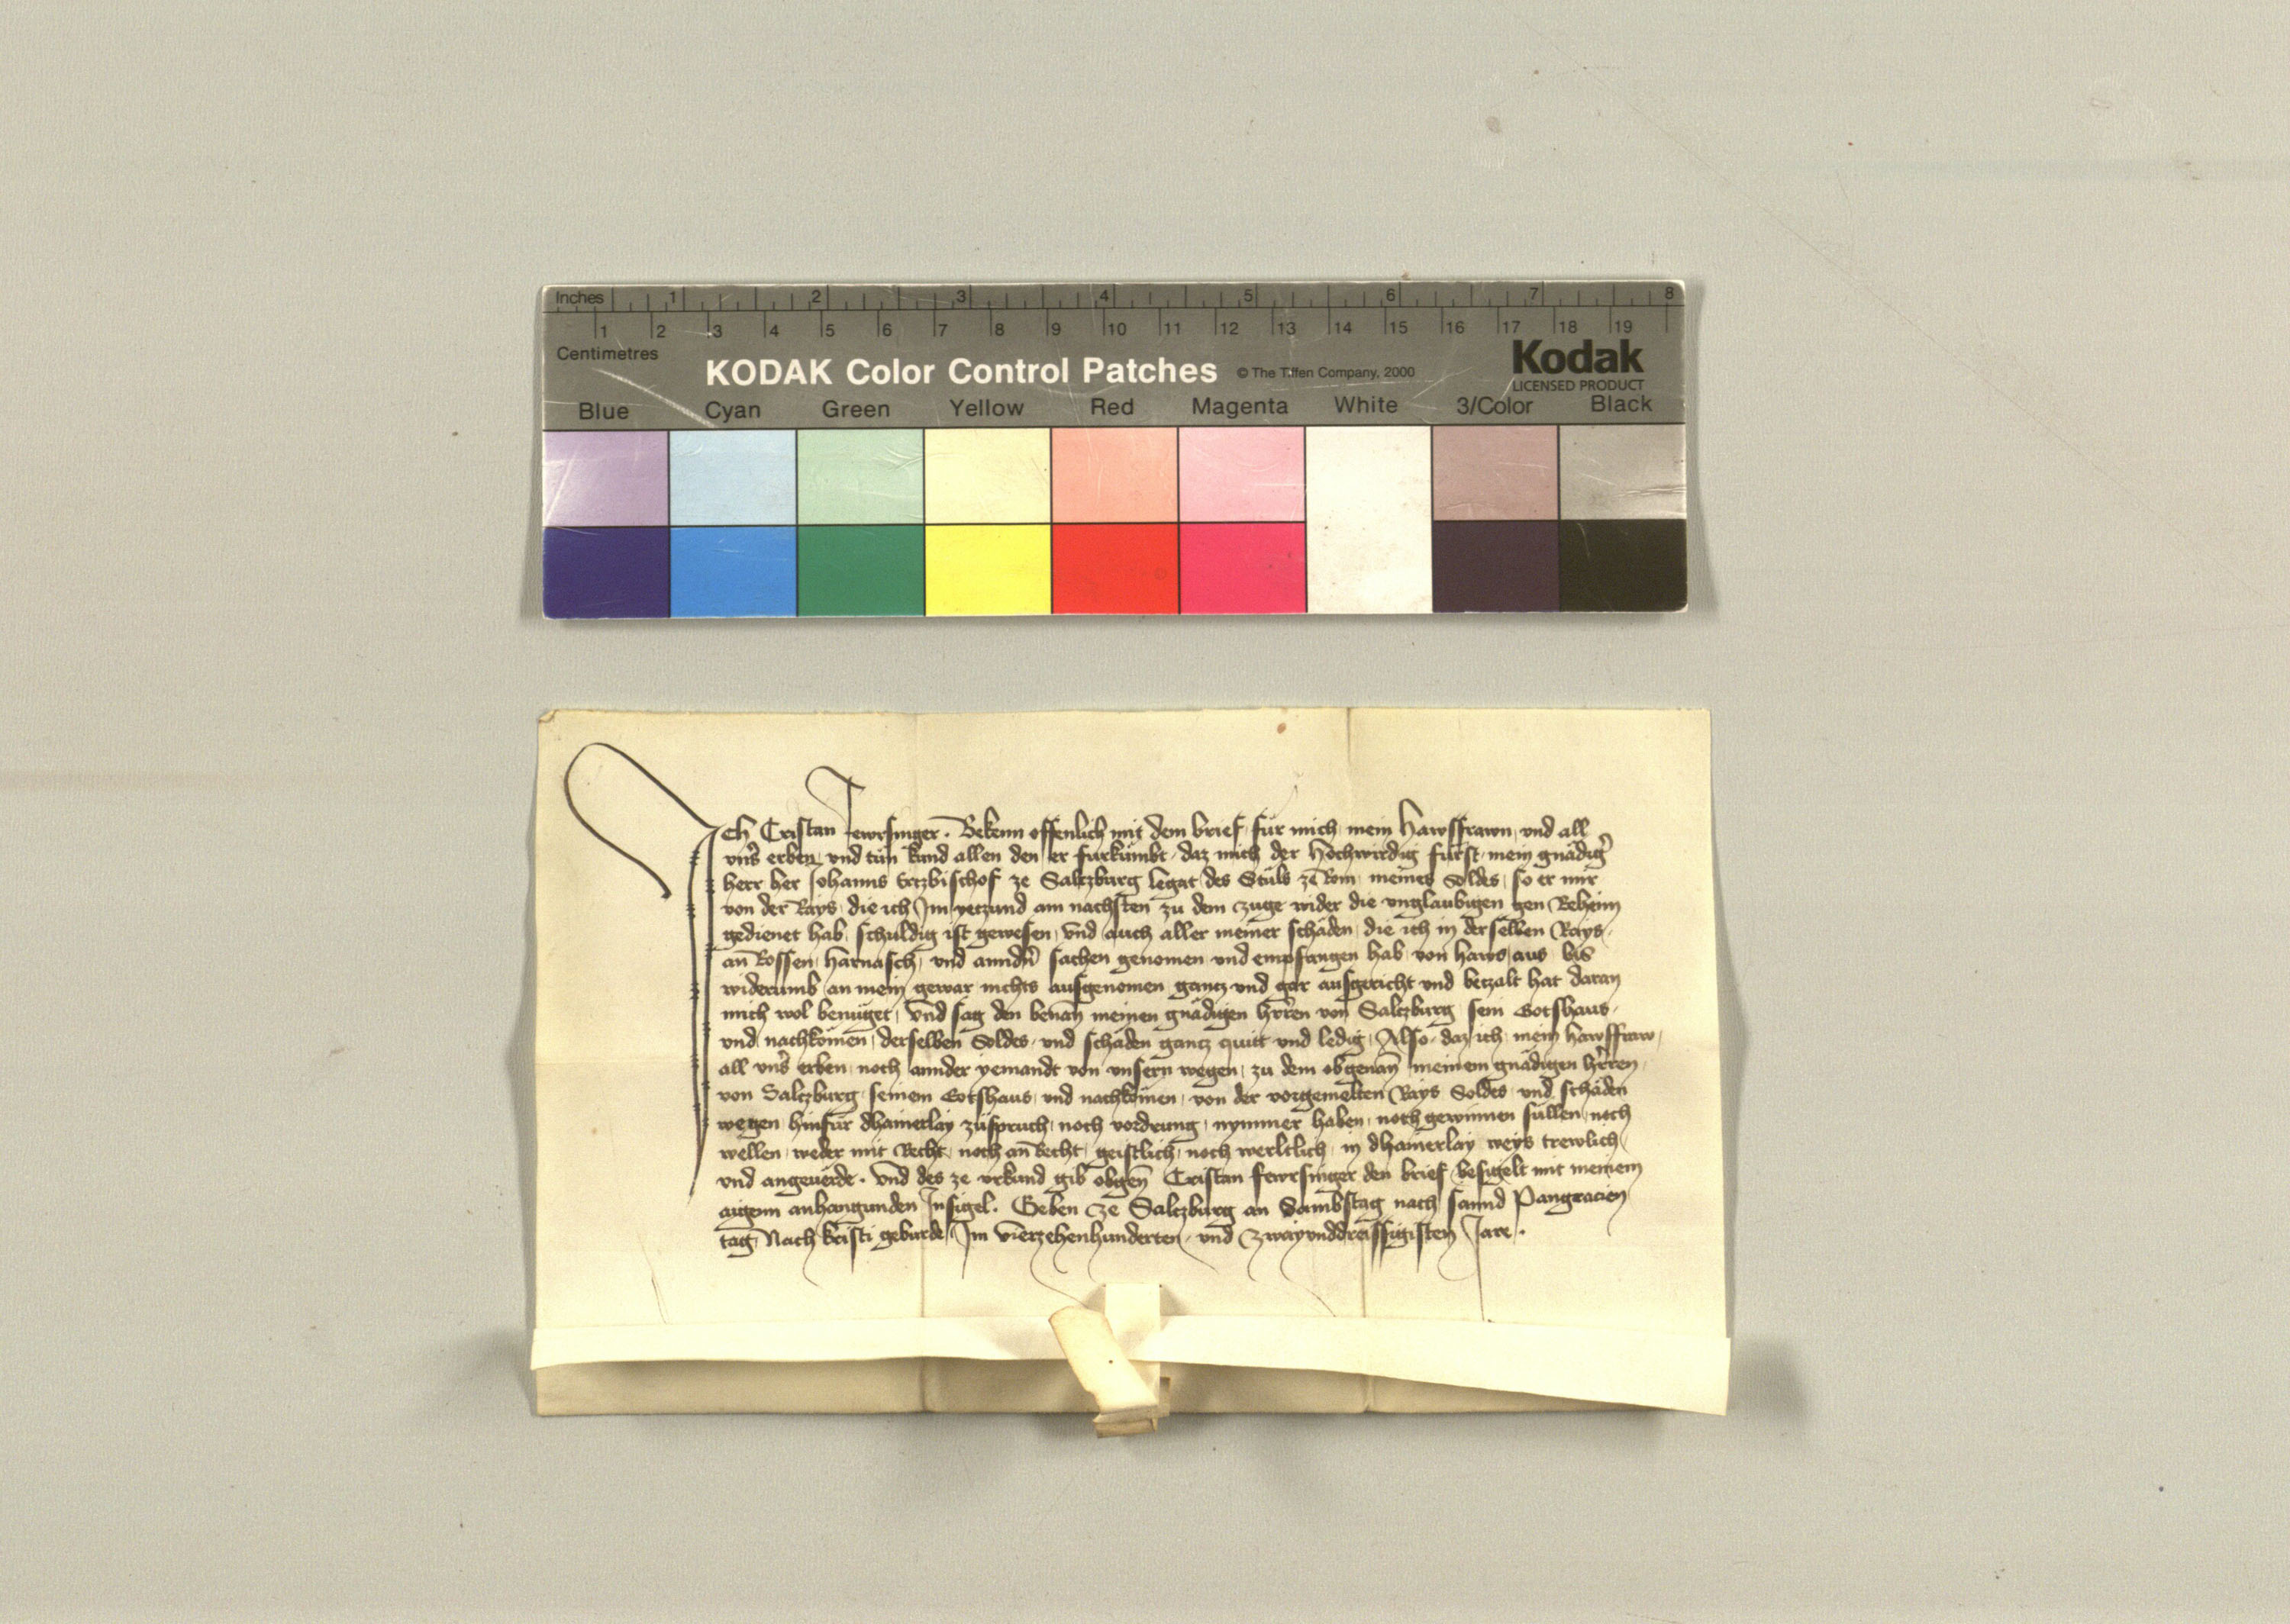 Inches 1 2 3 4 5 6 7 8
1 2 3 4 5 6 7 8 9 10 11 12 13 14 15 16 17 18 19
Centimetres
KODAK Color Control Patches © The Tiffen Company, 2000 Kodak
LICENSED PRODUCT
Blue Cyan Green Yellow Red Magenta White 3/Color Black
Ich Cristan Fewrsinger. Bekenn offenlich mit dem brief fur mich mein Hawsfrawn und all
uns̄ erben und tun kund allen den er furkumbt daz mich der Hochwirdig furst mein gnadiḡ
herr her Johanns Ertzbischof ze Saltzburg legat des Stuls ze Rom meines Soldes so er mir
von der Rays die ich Im yetzund am nachsten zu dem Zuge wider die unglaubigen gen Beheim
gedienet hab schuldig ist gewesen Und auch aller meiner schäden die ich in derselben Rays
an Rossen Harnasch und anndn̄ sachen genomen und empfangen hab von haws aus bis
widerumb an mein gewar nichts ausgenomen gantz und gar ausgericht und betzalt hat daran
mich wol benüget Und sag den benan̄ meinen gnädigen hr̄ren von Saltzburg sein Gotshaus
und nachkomen derselben Soldes und schaden gantz quitt und ledig Also daz ich mein hawsfraw
all uns̄ erben noch annder yemandt von unsern wegen zu dem obgenan̄ meinem gnädigen hr̄ren
von Saltzburg seinem Gotshaus und nachkomen von der vorgemelten Rays Soldes und schäden
wegen hinfur dhainerlay zuspruch noch vordrung nymmer haben noch gewinnen sullen noch
wellen weder mit Recht noch an Recht geistlich noch werltlich in dhainerlay weys trewlich
und angeuerde. Und des ze urkund gib obgen̄ Cristan fewrsinger den brief besigelt mit meinem
aigenn anhangunden Insigel. Geben ze Saltzburg an Sambstag nach sannd Pangracien
tag Nach kristi geburde Im Vierzehenhunderten und Zwayunddreissigisten Jare.